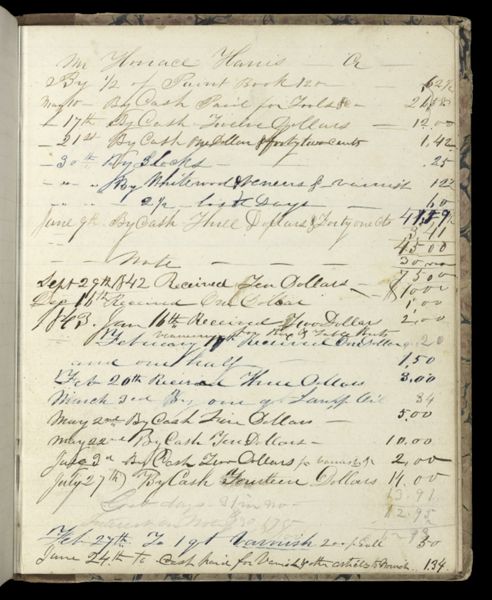 Mr Horace Harris — Cr —
By 1/2 of Paint Book 120 — 62 1/2
May 10 — By Cash Paid for Tools &c — 21.58
— 17th By Cash Twelve Dollars — 12.00
— 21st By Cash one Dollar & forty two cents 1,42
— 30th By Blocks — 25
— " — " By Whitewood & veneers & varnish 1 22
" " 2 1/2 lost Days — 60
June 9th By Cash Three Dollars & Forty one Cts
3 41
45 00
— Note — 30,00
75 00
Sept 29th 1842 Received Ten Dollars — 10 00
Received One Dollar 1,00
1843. Jan 16th Received Two Dollars 2,00
February Received One Dollar 20
and one half — 1,50
Feb 20th Received Three Dollars 3,00
March 2nd By one g Lamp Oil 84
May 2nd By Cash Five Dollars — 5.00
May 22nd By Cash Ten Dollars — 10.00
July 3d By Cash Two Dollars 2,00
July 27th By Cash Fourteen Dollars 14.00
63,91
Lost days 31 in no
12.95
Feb 27th To 1 qt Varnish 50
June 24th to Cash paid for Varnish & other articles 1.34